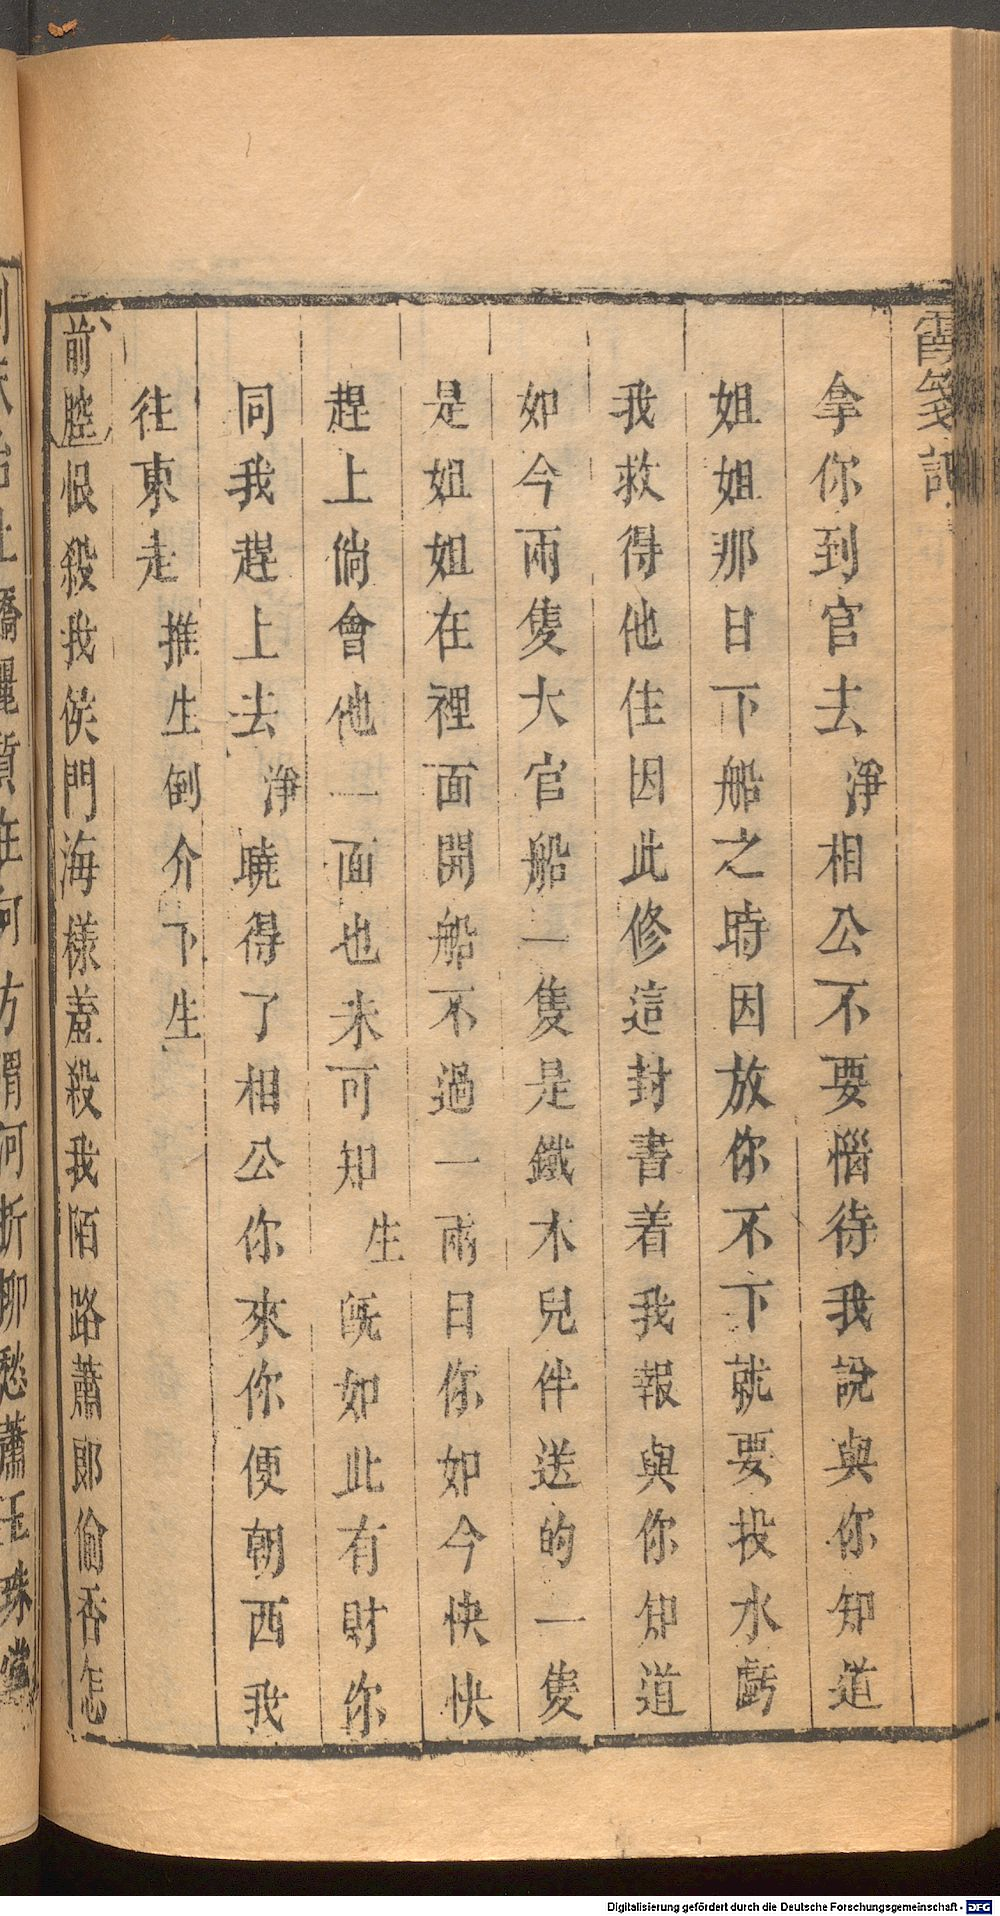 霄箋記
拿你到官去淨相公不要惱待我說與你知道
姐姐那日下船之時因放你不下就要投水虧
我救得他住因此修這封書着我報與你知道
如今兩隻大官船一隻是鐵木兒件送的一隻
是姐姐在裡面開船不過一兩日你如今快快
趕上倘會他一面也未可知生既如此有財你
同我趕上去淨曉得了相公你來你便朝西我
往東走推生倒介下生
前腔恨殺我侯門海樣羞殺我陌路蕭郎偷香怎
嬌麗質在何方渭河折柳愁蕭玉珠
Digitalisierung gefördert durch die Deutsche Forschungsgemeinschaft - DFG